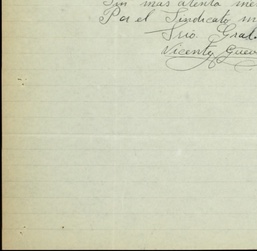 Sin mas atento me
Por el Sindicato m
Srio. Gral.
Vicente Guev